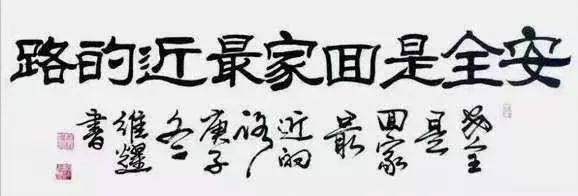 安全是回家最近的路
安全
是
回家
最
近的
路
庚子
冬
維
書